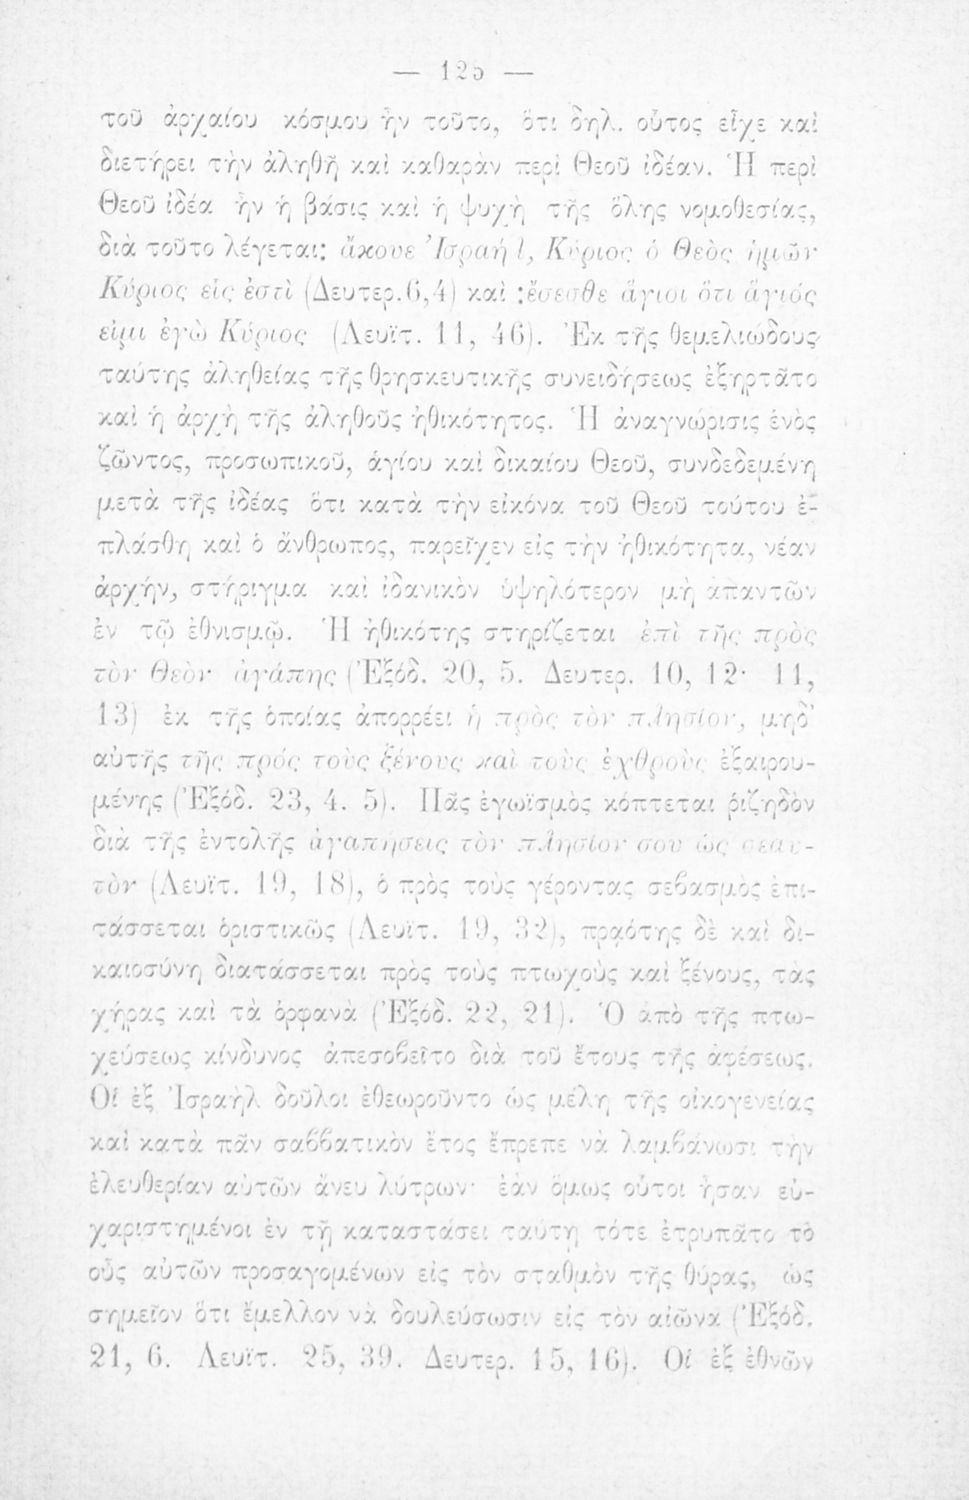 — 125 —
τοῦ ἀρχαίου κόσμου ἦν τοῦτο, ὅτι δηλ. οὗτος εἶχε καὶ
διετήρει τὴν ἀληθῆ καὶ καθαρὰν περὶ Θεοῦ ἰδέαν. Ἡ περὶ
Θεοῦ ἰδέα ἦν ἡ βάσις καὶ ἡ ψυχὴ τῆς ὅλης νομοθεσίας,
διὰ τοῦτο λέγεται: ἄκουε Ἰσραήλ, Κύριος ὁ Θεὸς ἡμῶν
Κύριος εἷς ἐστὶ (Δευτερ. 6,4) καὶ :ἔσεσθε ἅγιοι ὅτι ἅγιός
εἰμι ἐγὼ Κύριος (Λευϊτ. 11, 46). Ἐκ τῆς θεμελιώδους
ταύτης ἀληθείας τῆς θρησκευτικῆς συνειδήσεως ἐξηρτᾶτο
καὶ ἡ ἀρχὴ τῆς ἀληθοῦς ἠθικότητος. Ἡ ἀναγνώρισις ἑνὸς
ζῶντος, προσωπικοῦ, ἁγίου καὶ δικαίου Θεοῦ, συνδεδεμένη
μετὰ τῆς ἰδέας ὅτι κατὰ τὴν εἰκόνα τοῦ Θεοῦ τούτου ἐ-
πλάσθη καὶ ὁ ἄνθρωπος, παρεῖχεν εἰς τὴν ἠθικότητα, νέαν
ἀρχήν, στήριγμα καὶ ἰδανικὸν ὑψηλότερον μὴ ἀπαντῶν
ἐν τῷ ἐθνισμῷ. Ἡ ἠθικότης στηρίζεται ἐπὶ τῆς πρὸς
τὸν Θεὸν ἀγάπης (Ἐξόδ. 20, 5. Δευτερ. 10, 12· 11,
13) ἐκ τῆς ὁποίας ἀπορρέει ἡ πρὸς τὸν πλησίον, μηδ'
αὐτῆς τῆς πρός τοὺς ξένους καὶ τοὺς ἐχθροὺς ἐξαιρου-
μένης (Ἐξόδ. 23, 4. 5). Πᾶς ἐγωϊσμὸς κόπτεται ῥιζηδὸν
διὰ τῆς ἐντολῆς ἀγαπήσεις τὸν πλησίον σου ὡς σεαυ-
τὸν (Λευϊτ. 19, 18), ὁ πρὸς τοὺς γέροντας σεβασμὸς ἐπι-
τάσσεται ὁριστικῶς (Λευϊτ. 19, 32), πραότης δὲ καὶ δι-
καιοσύνη διατάσσεται πρὸς τοὺς πτωχοὺς καὶ ξένους, τὰς
χήρας καὶ τὰ ὀρφανὰ (Ἐξόδ. 22, 21). Ὁ ἀπὸ τῆς πτω-
χεύσεως κίνδυνος ἀπεσοβεῖτο διὰ τοῦ ἔτους τῆς ἀφέσεως.
Οἱ ἐξ Ἰσραὴλ δοῦλοι ἐθεωροῦντο ὡς μέλη τῆς οἰκογενείας
καὶ κατὰ πᾶν σαββατικὸν ἔτος ἔπρεπε νὰ λαμβάνωσι τὴν
ἐλευθερίαν αὐτῶν ἄνευ λύτρων· ἐὰν ὅμως οὗτοι ἦσαν εὐ-
χαριστημένοι ἐν τῇ καταστάσει ταύτῃ τότε ἐτρυπᾶτο τὸ
οὖς αὐτῶν προσαγομένων εἰς τὸν σταθμὸν τῆς θύρας, ὡς
σημεῖον ὅτι ἔμελλον νὰ δουλεύσωσιν εἰς τὸν αἰῶνα (Ἐξόδ.
21, 6. Λευϊτ. 25, 39. Δευτερ. 15, 16). Οἱ ἐξ ἐθνῶν